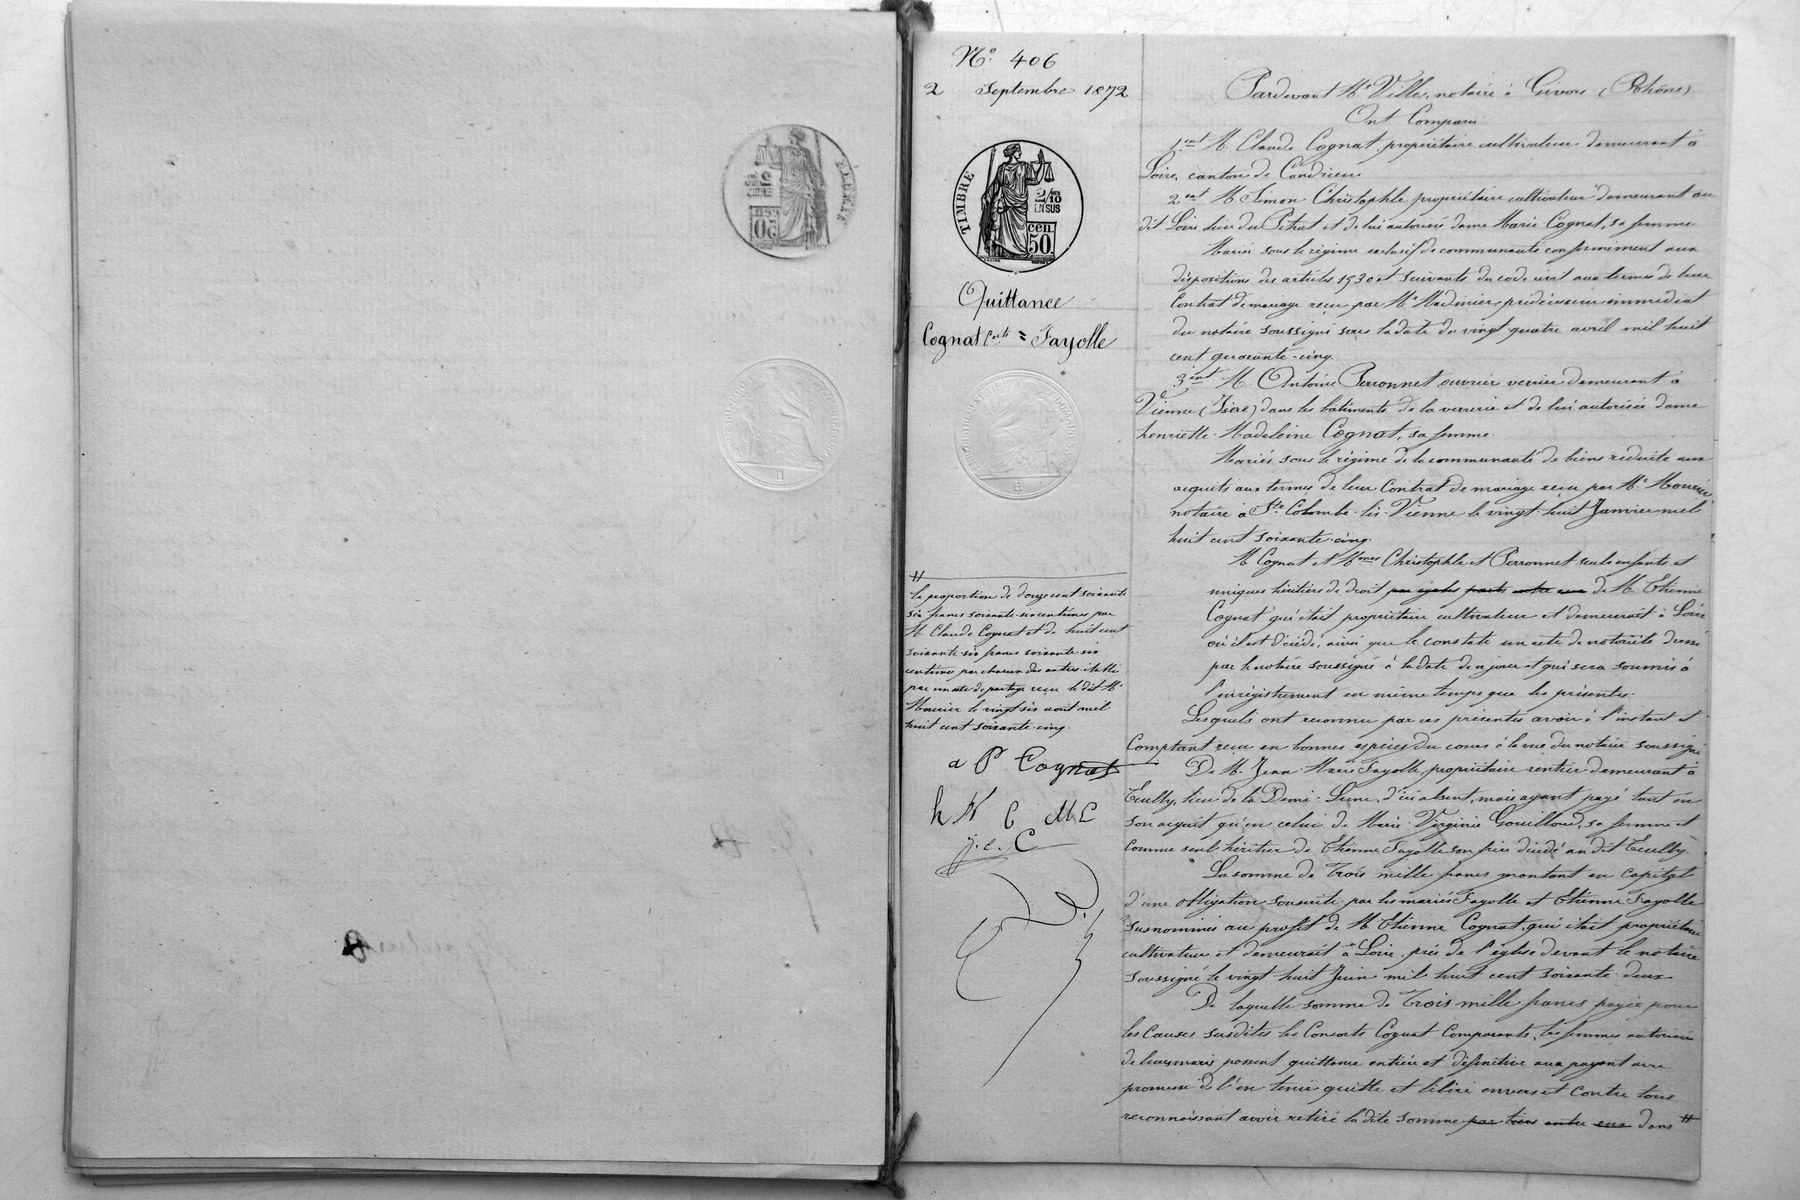 N° 406
2 Septembre 1872
TIMBRE
2/10
EN SUS
cen.
50.
Quittance
Cognat Cts = Fayolle
#
la proportion de douze cent soixante
six francs soixante-six centimes par
M. Claude Cognat et de huit cent
soixante six francs soixante six
centimes par chacun des autres établie
par un acte de partage reçu le dit Me
Mourier le vingt six août mil
huit cent soixante-cinq.
a P Cognat
h N C MC
j.c. C
Pardevant Me Ville, notaire à Givors (Rhône)
Ont Comparu
1.ent M. Claude Cognat, propriétaire cultivateur demeurant à
Loire, canton de Condrieu
2.ent M. Simon Christophle propriétaire cultivateur demeurant au
dit Loire lieu du Pétrut et de lui autorisée dame Marie Cognat, sa femme
Mariés sous le régime exclusif de communauté conformément aux
dispositions des articles 1530 et suivants du code civil aux termes de leur
Contrat de mariage reçu par Me Madinier, prédécesseur immédiat
du notaire soussigné sous la date du vingt quatre avril mil huit
cent quarante-cinq.
3.ent M. Antoine Perronnet, ouvrier verrier demeurant à
Vienne (Isère) dans les bâtiments de la verrerie et de lui autorisée dame
henriette-Madeleine Cognat, sa femme.
Mariés sous le régime de la communauté de biens réduite aux
acquêts aux termes de leur Contrat de mariage reçu par Me Mourier
notaire à Ste Colombe-lès-Vienne le vingt-huit Janvier mil
huit cent soixante-cinq.
M Cognat et Mmes Christophle et Perronnet seuls enfants et
uniques héritiers de droit par égales parts entre eux de M. Etienne
Cognat qui était propriétaire cultivateur et demeurait à Loire
où il est décédé, ainsi que le constate un acte de notoriété dressé
par le notaire soussigné à la date de ce jour et qui sera soumis à
l'enregistrement en même temps que les présentes.
Lesquels ont reconnu par ces présentes avoir à l'instant et
Comptant reçu en bonnes espèces du cours à la vue du notaire soussigné
De M. Jean Marie Fayolle, propriétaire rentier demeurant à
Ecully, lieu de la Demi-Lune, d'ici absent, mais ayant payé tant en
son acquit qu'en celui de Marie Virginie Gouilloud, sa femme et
Comme seul héritier de Etienne Fayolle son frère décédé au dit Ecully.
La somme de Trois mille francs montant en capital
d'une obligation souscrite par les mariés Fayolle et Etienne Fayolle
susnommés au profit de M Etienne Cognat, qui était propriétaire
cultivateur et demeurait à Loire, près de l'église devant le notaire
soussigné le vingt huit Juin mil huit cent soixante deux
De laquelle somme de Trois mille francs payée pour
les Causes susdites les Consorts Cognat Comparants, les femmes autorisées
de leurs maris passent quittance entière et définitive aux payant avec
promesse de l'en tenir quitte et libéré envers et contre tous
reconnaissant avoir retiré la dite somme par tiers entre eux dans #